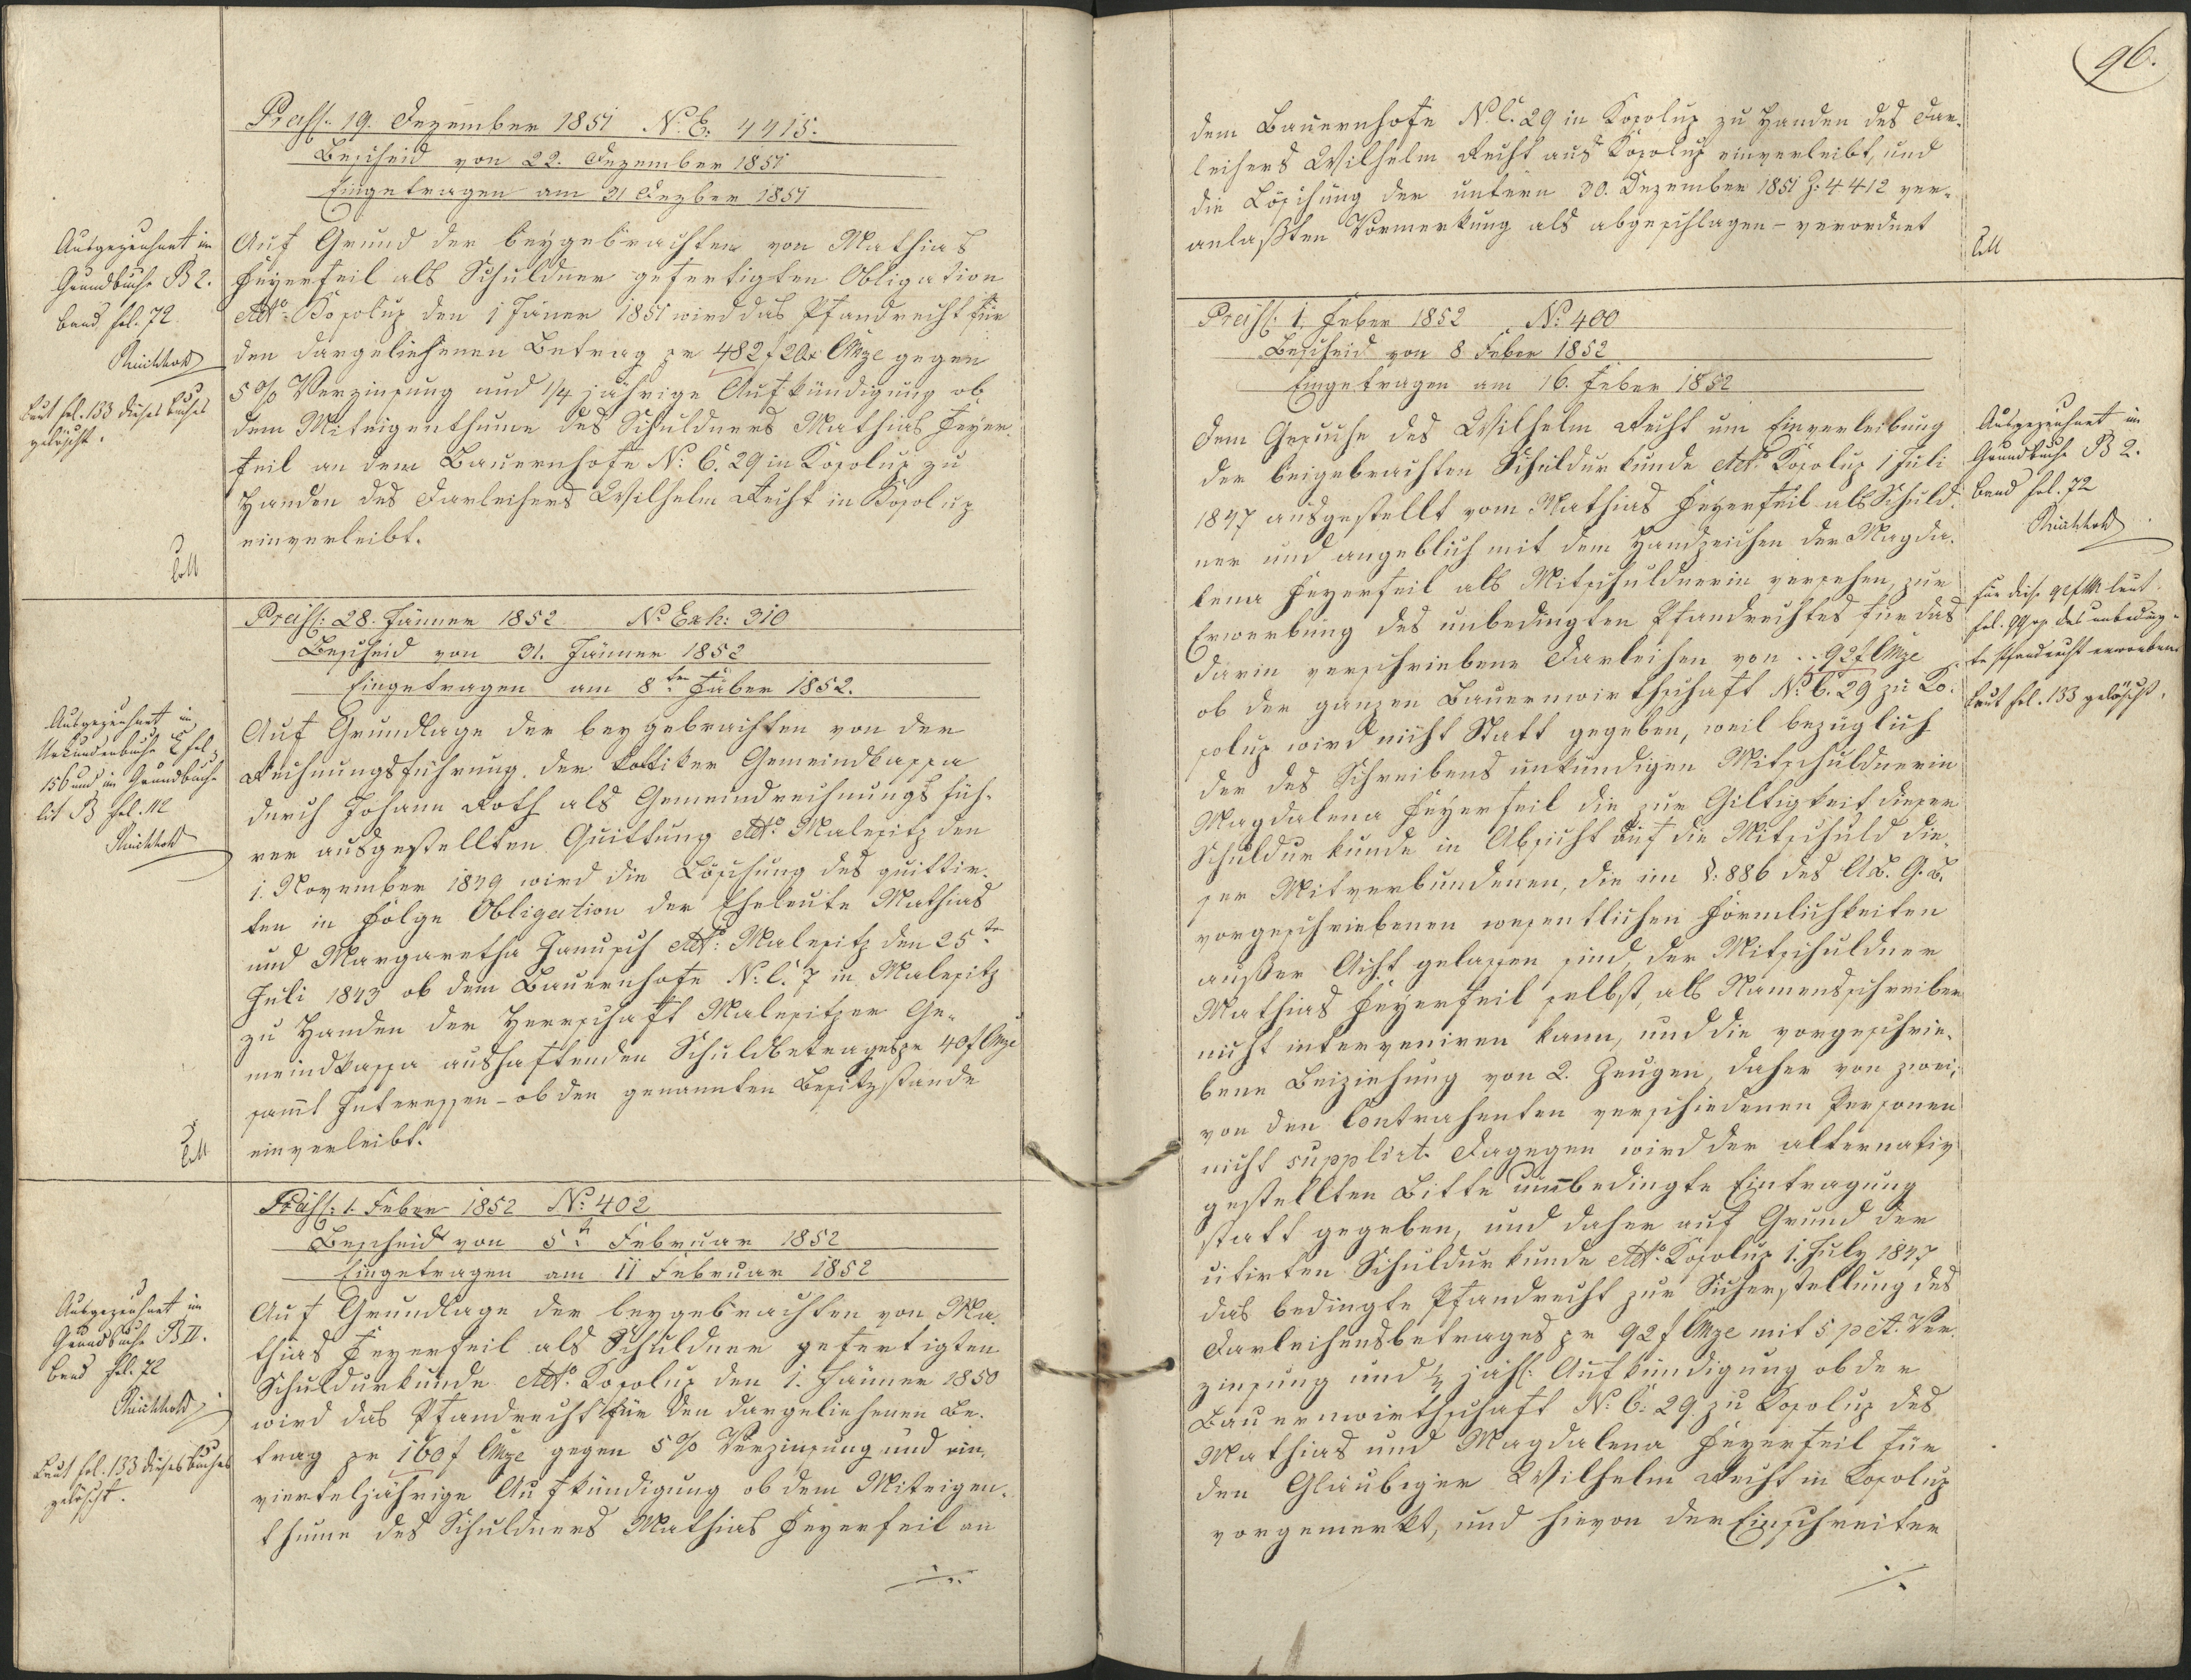 Präs: 19. Dezember 1851 N: E: 4415.
Bescheid von 22. Dezember 1851
Eingetragen am 31 Dezber 1851
Ausgezeichnet im
Grundbuche B 2.
Band fol. 72
laut fol. 133 dieses Buches
gelöscht.
Auf Grund der beygebrachten von Mathias
Feyerfeil als Schuldner gefertigten Obligation
ddto Kosolup den 1 Jäner 1851 wird das Pfandrecht für
den dargeliehenen Betrag pr 482 f 20 x CMze gegen
5 % Verzinsung und 1/4 jährige Aufkündigung ob
dem Miteigenthume des Schuldners Mathias Feyer-
feil an dem Bauernhofe N: C. 29 in Kosolup zu
Handen des Darleihers Wilhelm Recht in Kosolup
einverleibt.
Präs: 28. Jänner 1852 No Exh: 310
Bescheid von 31. Jänner 1852
Eingetragen am 8ten Feber 1852.
Ausgezeichnet im
Urkundenbuche E fol.
156 und im Grundbuche
lit B fol. 112
Auf Grundlage der beygebrachten von der
Rechnungsführung der Kottiker Gemeindkassa
durch Johann Roth als Gemeindrechnungsfüh-
rer ausgestellten Quittung ddto Malesitz den
1. November 1849 wird die Löschung des quittir-
ten in Folge Obligation der Eheleute Mathias
und Margaretha Janusch ddto: Malesitz den 25te
Juli 1843 ob dem Bauernhofe N: C. 7 in Malesitz
zu Handen der Herrschaft Malesitzer Ge-
meindkassa aushaftenden Schuldbetrages pr 40 f CMze
sammt Interessen – ob den genannten Besitzstande
einverleibt.
Präs: 1. Feber 1852 No: 402
Bescheid von 5t Februar 1852
Eingetragen am 11 Februar 1852
Ausgezeichnet im
Grundbuche B II.
Band fol. 72
Laut fol. 133 dieses Buches
gelöscht.
Auf Grundlage der beygebrachten von Ma-
thias Feyerfeil als Schuldner gefertigten
Schuldurkunde ddto. Kosolup den 1. Jänner 1850
wird das Pfandrecht für den dargeliehenen Be-
trag pr 160 f CMze gegen 5 % Verzinsung und ein
vierteljährige Aufkündigung ob dem Miteigen-
thume des Schuldners Mathias Feyerfeil an
96.
dem Bauernhofe N: C. 29 in Kosolup zu Handen des Dar-
leihers Wilhelm Recht aus Kosolup einverleibt, und
die Löschung der unterm 30. Dezember 1851 Z: 4412 ver-
anlaßten Vormerkung als abgeschlagen – verordnet
Präs: 1. Feber 1852 No: 400
Bescheid von 8 Feber 1852
Eingetragen am 16. Feber 1852
Ausgezeichnet im
Grundbuche B 2.
Band fol. 72
Für diese 92 f CM laut
fol. 99 das unbeding-
te Pfandrecht erworben
laut fol. 133 gelöscht.
Dem Gesuche des Wilhelm Recht um Einverleibung
der beigebrachten Schuldurkunde ddto. Kosolup 1 Juli
1847 ausgestellt vom Mathias Feyerfeil als Schuld-
ner und angeblich mit dem Handzeichen der Magda-
lena Feyerfeil als Mitschuldnerin versehen, zur
Erwerbung des unbedingten Pfandrechtes für das
darin verschriebene Darleihen von . . 92 f CMze
ob der ganzen Bauernwirthschaft No: C. 29 zu Ko-
solup wird nicht Statt gegeben, weil bezüglich
der des Schreibens unkundigen Mitschuldnerin
Magdalena Feyerfeil die zur Giltigkeit dieser
Schuldurkunde in Absicht auf die Mitschuld die-
ser Mitverbundenen, die im §: 886 des A.B.G.B.
vorgeschriebenen wesentlichen Förmlichkeiten
außer Acht gelassen sind, der Mitschuldner
Mathias Feyerfeil selbst, als Namensschreiber
nicht interveniren kann, und die vorgeschrie-
bene Beiziehung von 2. Zeugen, daher von zwei;
von den Contrahenten verschiedenen Personen
nicht supplirt. Dagegen wird der alternativ
gestellten Bitte um bedingte Eintragung
statt gegeben, und daher auf Grund der
citirten Schuldurkunde ddto. Kosolup 1. July 1847
das bedingte Pfandrecht zur Sicherstellung des
Darleihensbetrages pr 92 f CMze mit 5 pct. Ver-
zinsung und 1/4 jäh: Aufkündigung ob der
Bauernwirthschaft N: C: 29 zu Kosolup des
Mathias und Magdalena Feyerfeil für
den Gläubiger Wilhelm Recht in Kosolup
vorgemerkt, und hievon der Einschreiter